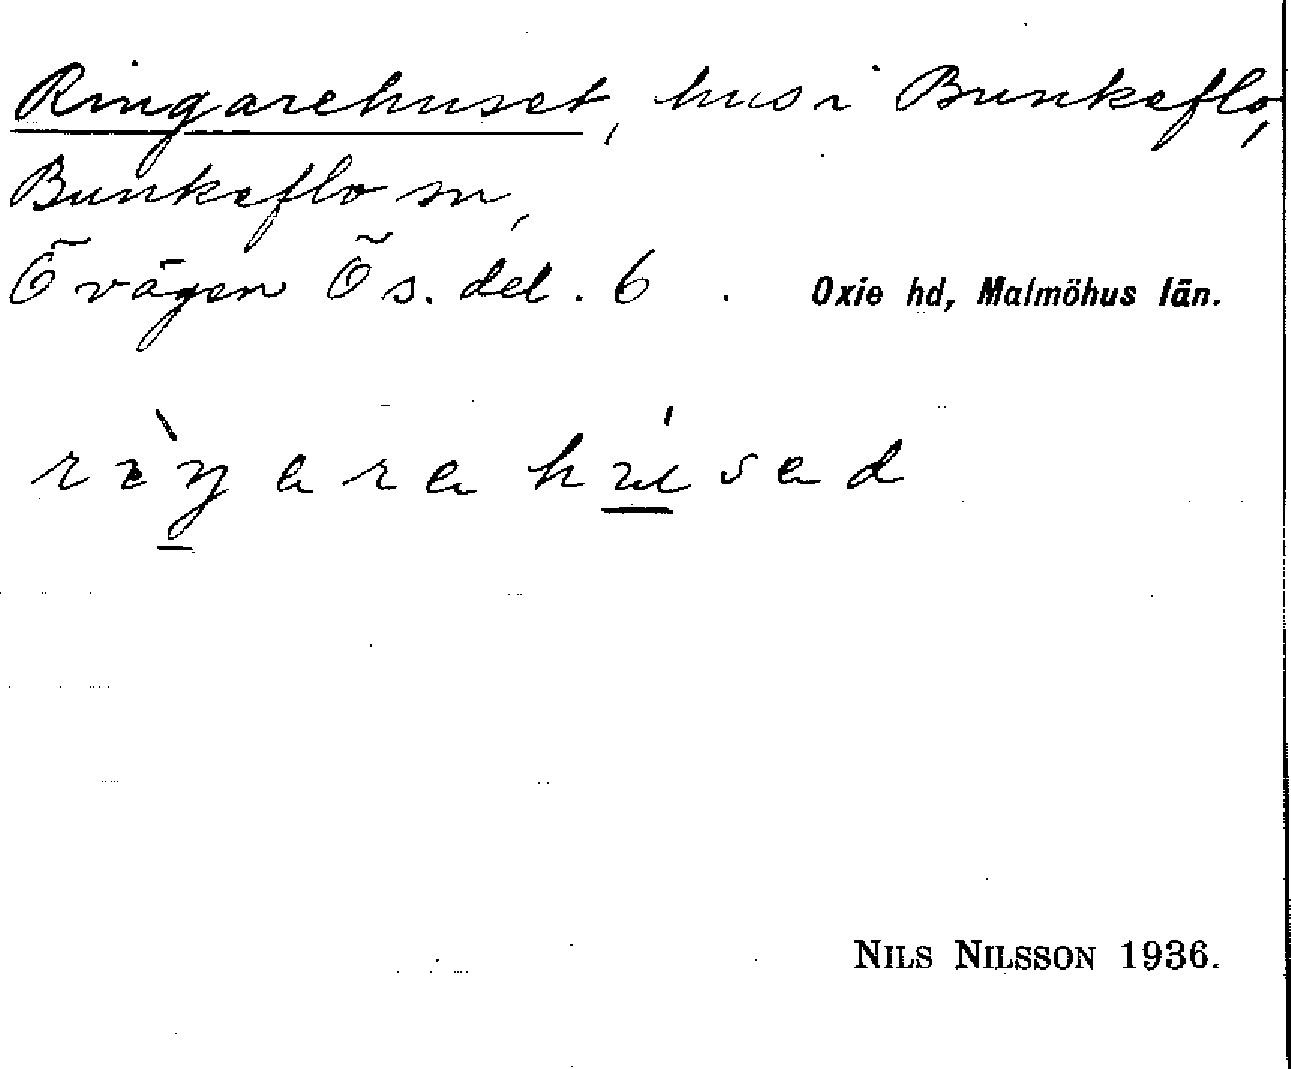 Ringarehuset, hus i Bunkeflo,
Bunkeflo sn,
Ö vägen Ö s. del. 6 . Oxie hd, Malmöhus län.
NILS NILSSON 1936.